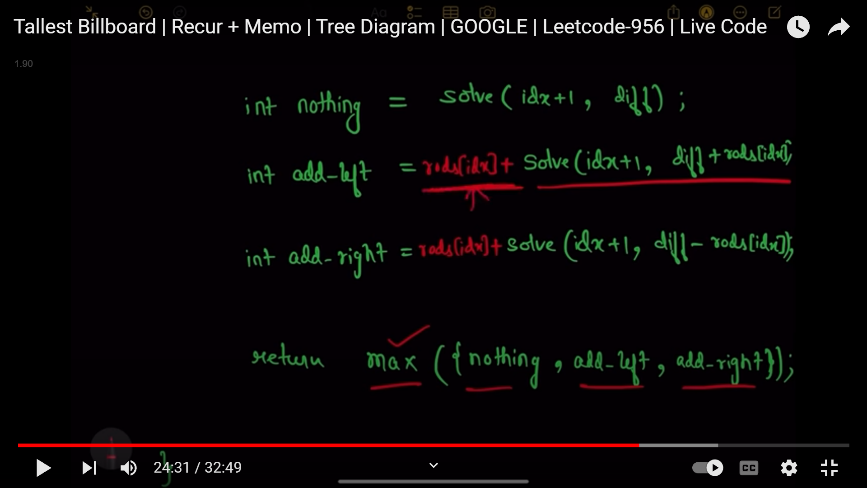 Tallest Billboard | Recur + Memo | Tree Diagram | GOOGLE | Leetcode-956 | Live Code
1.90
int nothing = solve(idx+1, diff);
int add-left = rods[idx]+ solve(idx+1, diff+rods[idx]);
int add-right = rods[idx]+ solve(idx+1, diff-rods[idx]);
return max({nothing, add-left, add-right});
}
24:31 / 32:49
CC